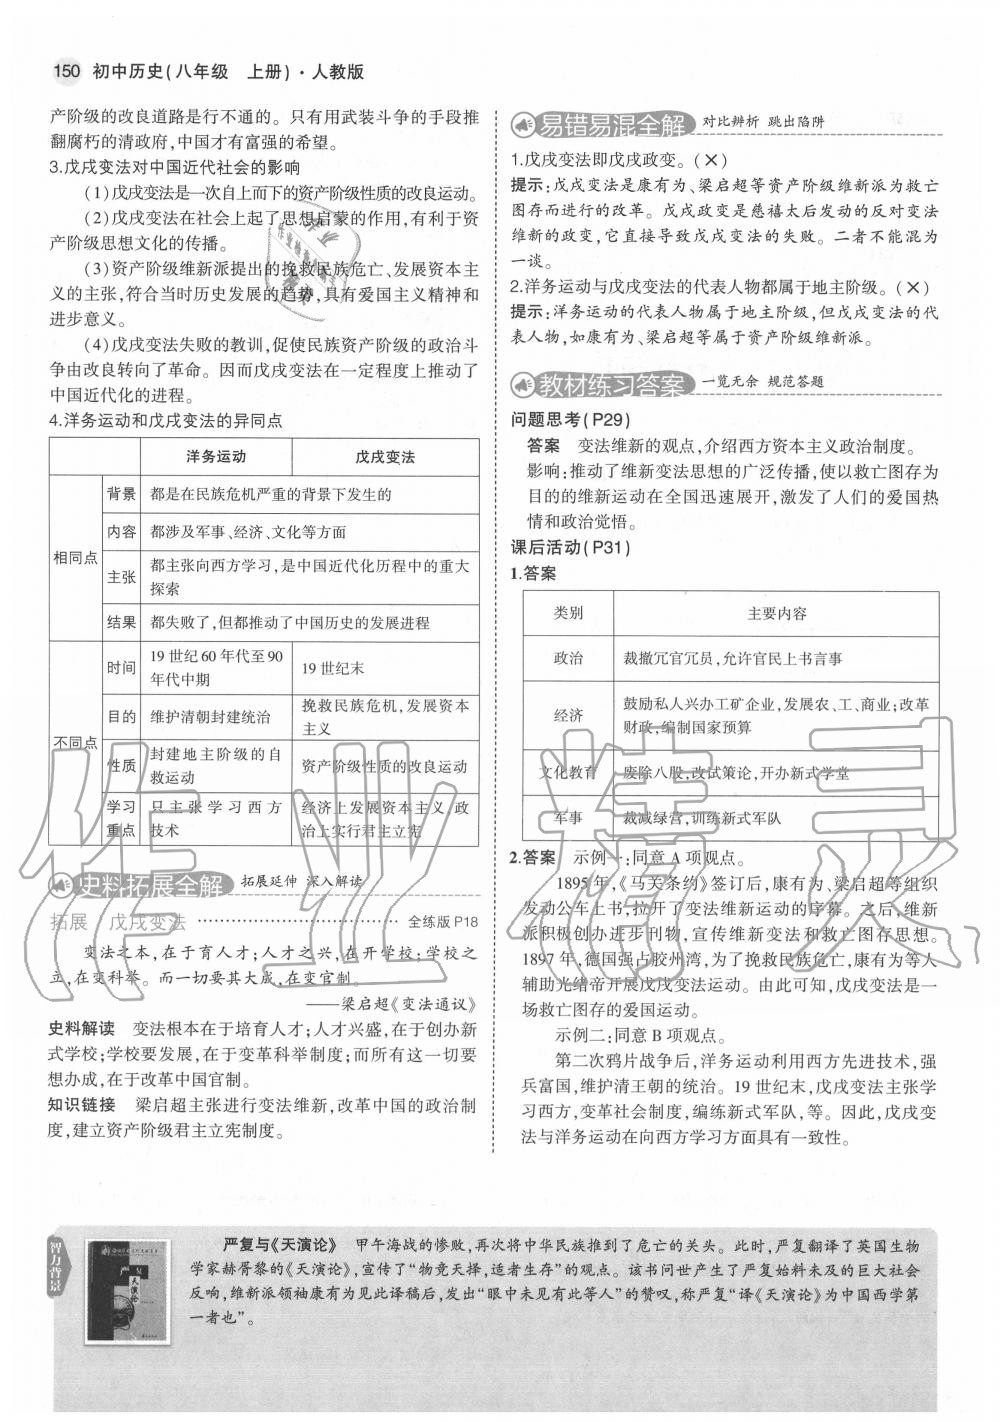 150 初中历史(八年级 上册)·人教版
产阶级的改良道路是行不通的。只有用武装斗争的手段推
翻腐朽的清政府,中国才有富强的希望。
3.戊戌变法对中国近代社会的影响
(1)戊戌变法是一次自上而下的资产阶级性质的改良运动。
(2)戊戌变法在社会上起了思想启蒙的作用,有利于资
产阶级思想文化的传播。
(3)资产阶级维新派提出的挽救民族危亡、发展资本主
义的主张,符合当时历史发展的趋势,具有爱国主义精神和
进步意义。
(4)戊戌变法失败的教训,促使民族资产阶级的政治斗
争由改良转向了革命。因而戊戌变法在一定程度上推动了
中国近代化的进程。
4.洋务运动和戊戌变法的异同点
洋务运动 戊戌变法
相同点
背景 都是在民族危机严重的背景下发生的
内容 都涉及军事、经济、文化等方面
主张 都主张向西方学习,是中国近代化历程中的重大
探索
结果 都失败了,但都推动了中国历史的发展进程
不同点
时间 19世纪60年代至90
年代中期
19世纪末
目的 维护清朝封建统治
挽救民族危机,发展资本
主义
性质 封建地主阶级的自
救运动
资产阶级性质的改良运动
学习
重点
只主张学习西方
技术
经济上发展资本主义,政
治上实行君主立宪
史料拓展全解 拓展延伸 深入解读
拓展 戊戌变法 …………………………… 全练版P18
变法之本,在于育人才;人才之兴,在开学校;学校之
立,在变科举。而一切要其大成,在变官制。
——梁启超《变法通议》
史料解读 变法根本在于培育人才;人才兴盛,在于创办新
式学校;学校要发展,在于变革科举制度;而所有这一切要
想办成,在于改革中国官制。
知识链接 梁启超主张进行变法维新,改革中国的政治制
度,建立资产阶级君主立宪制度。
易错易混全解 对比辨析 跳出陷阱
1.戊戌变法即戊戌政变。(×)
提示:戊戌变法是康有为、梁启超等资产阶级维新派为救亡
图存而进行的改革。戊戌政变是慈禧太后发动的反对变法
维新的政变,它直接导致戊戌变法的失败。二者不能混为
一谈。
2.洋务运动与戊戌变法的代表人物都属于地主阶级。(×)
提示:洋务运动的代表人物属于地主阶级,但戊戌变法的代
表人物,如康有为、梁启超等属于资产阶级维新派。
教材练习答案 一览无余 规范答题
问题思考(P29)
答案 变法维新的观点,介绍西方资本主义政治制度。
影响:推动了维新变法思想的广泛传播,使以救亡图存为
目的的维新运动在全国迅速展开,激发了人们的爱国热
情和政治觉悟。
课后活动(P31)
1.答案
类别 主要内容
政治 裁撤冗官冗员,允许官民上书言事
经济 鼓励私人兴办工矿企业,发展农、工、商业;改革
财政,编制国家预算
文化教育 废除八股,改试策论,开办新式学堂
军事 裁减绿营,训练新式军队
2.答案 示例一:同意A项观点。
1895年,《马关条约》签订后,康有为、梁启超等组织
发动公车上书,拉开了变法维新运动的序幕。之后,维新
派积极创办进步刊物,宣传维新变法和救亡图存思想。
1897年,德国强占胶州湾,为了挽救民族危亡,康有为等人
辅助光绪帝开展戊戌变法运动。由此可知,戊戌变法是一
场救亡图存的爱国运动。
示例二:同意B项观点。
第二次鸦片战争后,洋务运动利用西方先进技术,强
兵富国,维护清王朝的统治。19世纪末,戊戌变法主张学
习西方,变革社会制度,编练新式军队,等。因此,戊戌变
法与洋务运动在向西方学习方面具有一致性。
智力背景
天演论
严复与《天演论》 甲午海战的惨败,再次将中华民族推到了危亡的关头。此时,严复翻译了英国生物
学家赫胥黎的《天演论》,宣传了“物竞天择,适者生存”的观点。该书问世产生了严复始料未及的巨大社会
反响,维新派领袖康有为见此译稿后,发出“眼中未见有此等人”的赞叹,称严复“译《天演论》为中国西学第
一者也”。
作业精灵